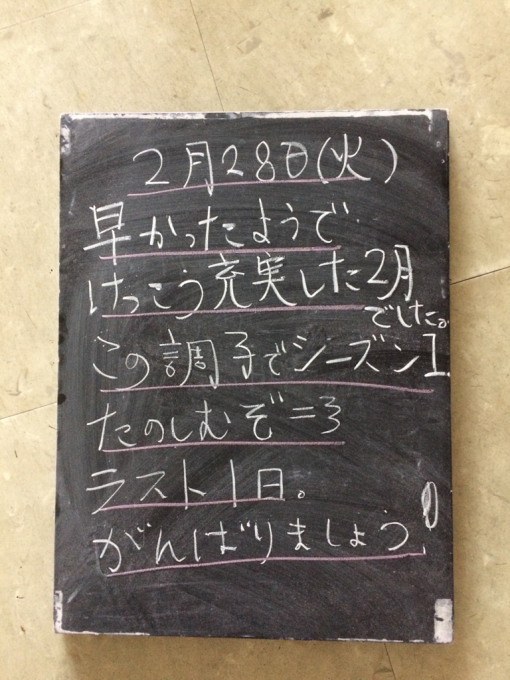 2月28日(火)
早かったようで
けっこう充実した2月
でした。
この調子でシーズンI
たのしむぞ=3
ラスト1日。
がんばりましょう!